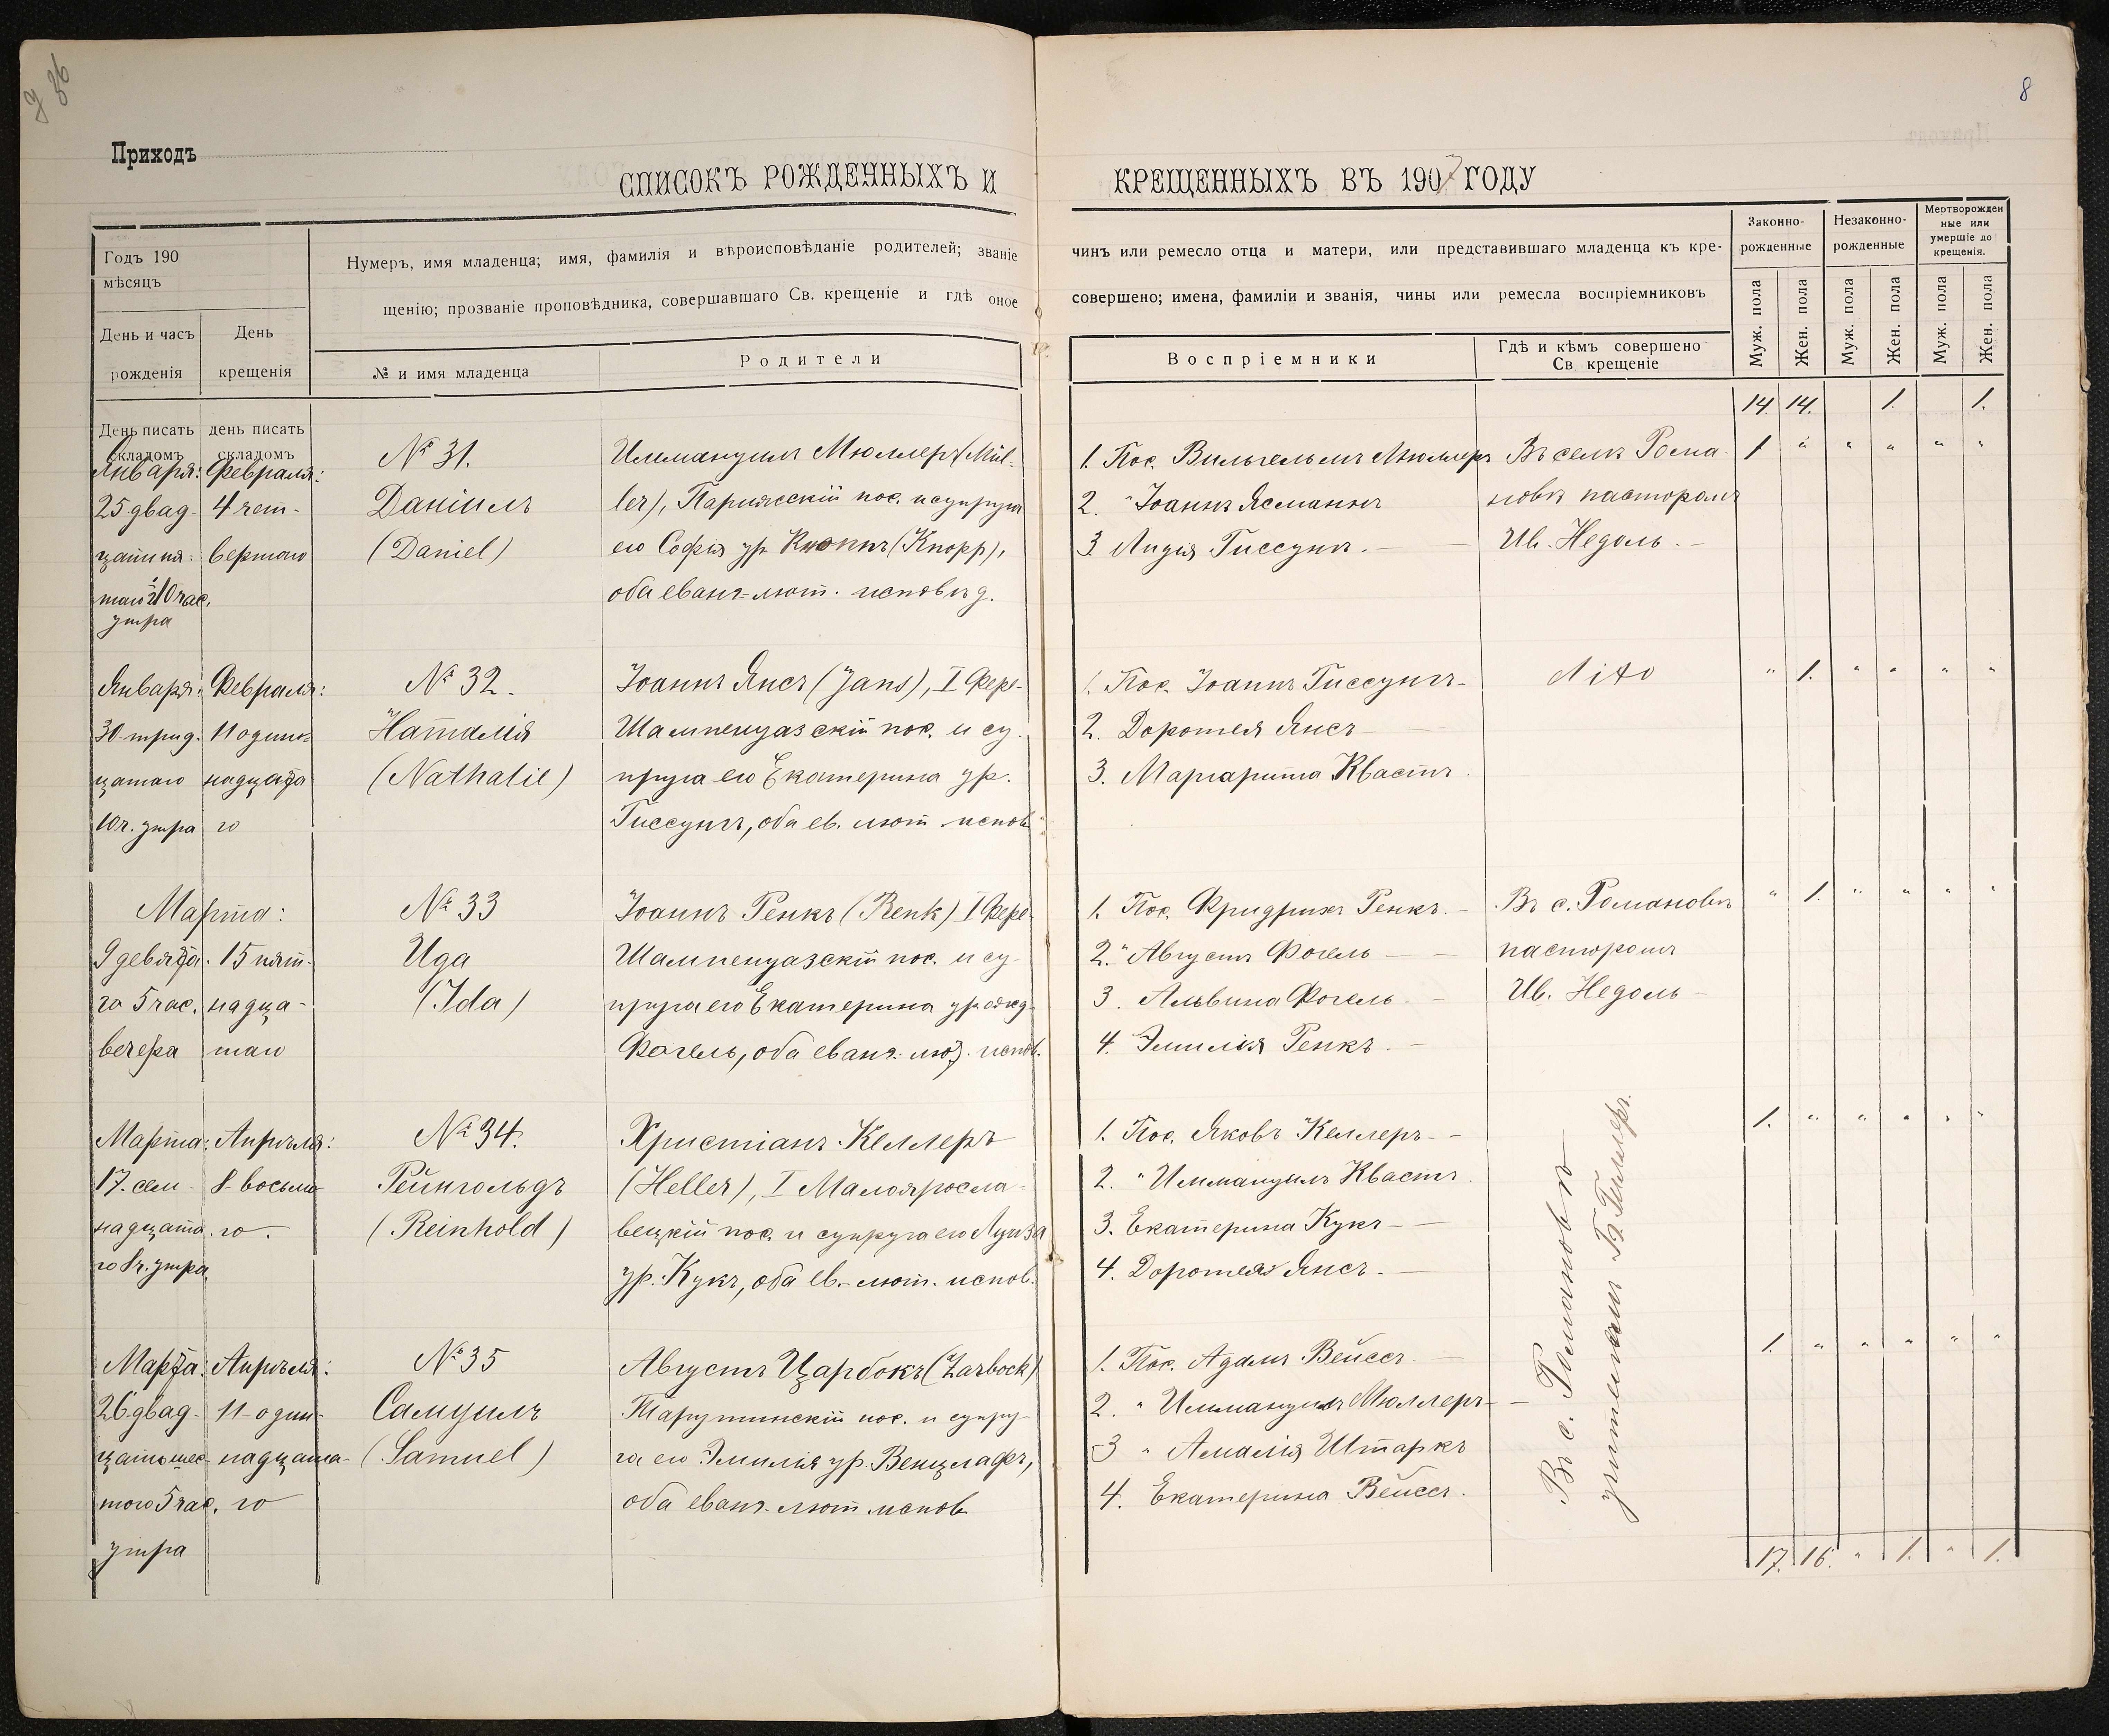 8
Приходъ
СПИСОКЪ РОЖДЕННЫХЪ И КРЕЩЕННЫХЪ ВЪ 1907 ГОДУ
Годъ 190
мѣсяцъ
День и часъ рожденія
День крещенія
Нумеръ, имя младенца; имя, фамилія и вѣроисповѣданіе родителей; званіе чинъ или ремесло отца и матери, или представившаго младенца къ кре-
щенію; прозваніе проповѣдника, совершавшаго Св. крещеніе и гдѣ оное совершено; имена, фамиліи и званія, чины или ремесла воспріемниковъ
№ и имя младенца
Родители
Воспріемники
Гдѣ и кѣмъ совершено
Св крещеніе
Законно-
рожденные
Незаконно-
рожденные
Мертворожден
ные или
умершіе до
крещенія.
Муж. пола
Жен. пола
Муж. пола
Жен. пола
Муж. пола
Жен. пола
День писать складомъ
день писать складомъ
14. 14. 1. 1.
Января:
25 двад-
цати пя-
таго 10 час.
утра
Февраля:
4 чет-
вертаго
№ 31.
Даніилъ
(Daniel)
Иммануилъ Мюллеръ (Mül-
ler), Парижскій пос. и супруга
его Софія ур. Кноппъ (Knopp),
оба еванг-лют. исповѣд.
1. Пос. Вильгельмъ Мюллеръ
2. " Іоаннъ Ясманнъ
3. Лидія Гиссунгъ.
Въ селѣ Рома-
новкѣ пасторомъ
Ив. Недоль.
1 " " " " "
Января:
30 трид-
цатаго
10 ч. утра
Февраля:
11 один-
надцата
го
№ 32.
Наталія
(Nathalie)
Іоаннъ Янсъ (Jans), I Фере-
Шампенуазскій пос. и су-
пруга его Екатерина ур.
Гиссунгъ, оба ев. лют испов.
1. Пос. Іоаннъ Гиссунгъ
2. Доротея Янсъ
3. Маргарита Квастъ.
Dito
" 1. " " " "
Марта:
9 девята-
го 5 час.
вечера
15 пят-
надца-
таго
№ 33
Ида
(Ida)
Іоаннъ Ренкъ (Renk) I Фере-
Шампенуазскій пос. и су-
пруга его Екатерина урожд.
Фогель, оба еванг.-лют. испов.
1. Пос. Фридрихъ Ренкъ.
2. " Августъ Фогель
3. Альвина Фогель
4. Эмилія Ренкъ.
Въ с. Романовкѣ
пасторомъ
Ив. Недоль
" 1. " " " "
Марта:
17. сем-
надцата
го 8 ч. утра
Апрѣля:
8 восьма-
го.
№ 34.
Рейнгольдъ
(Reinhold)
Христіанъ Келлеръ
(Keller), I Малояросла-
вецкій пос. и супруга его Луиза
ур. Кукъ, оба ев.-лют. испов.
1. Пос. Яковъ Келлеръ
2. " Иммануилъ Квастъ.
3. Екатерина Кукъ
4. Доротея Янсъ.
1. " " " " "
Марта:
26 двад-
цать шес-
того 5 час.
утра
Апрѣля:
11 один-
надцата-
го
№ 35
Самуилъ
(Samuel)
Августъ Царбокъ (Zarbock)
Тарутинскій пос. и супру-
га его Эмилія ур. Венцлафъ,
оба еванг. лют испов
1. Пос. Адамъ Вейссъ.
2. " Иммануилъ Мюллеръ
3 " Амалія Штаркъ
4. Екатерина Вейссъ.
Въ с. Романовкѣ
учителемъ
1. " " " " "
17. 16. " 1. " 1.